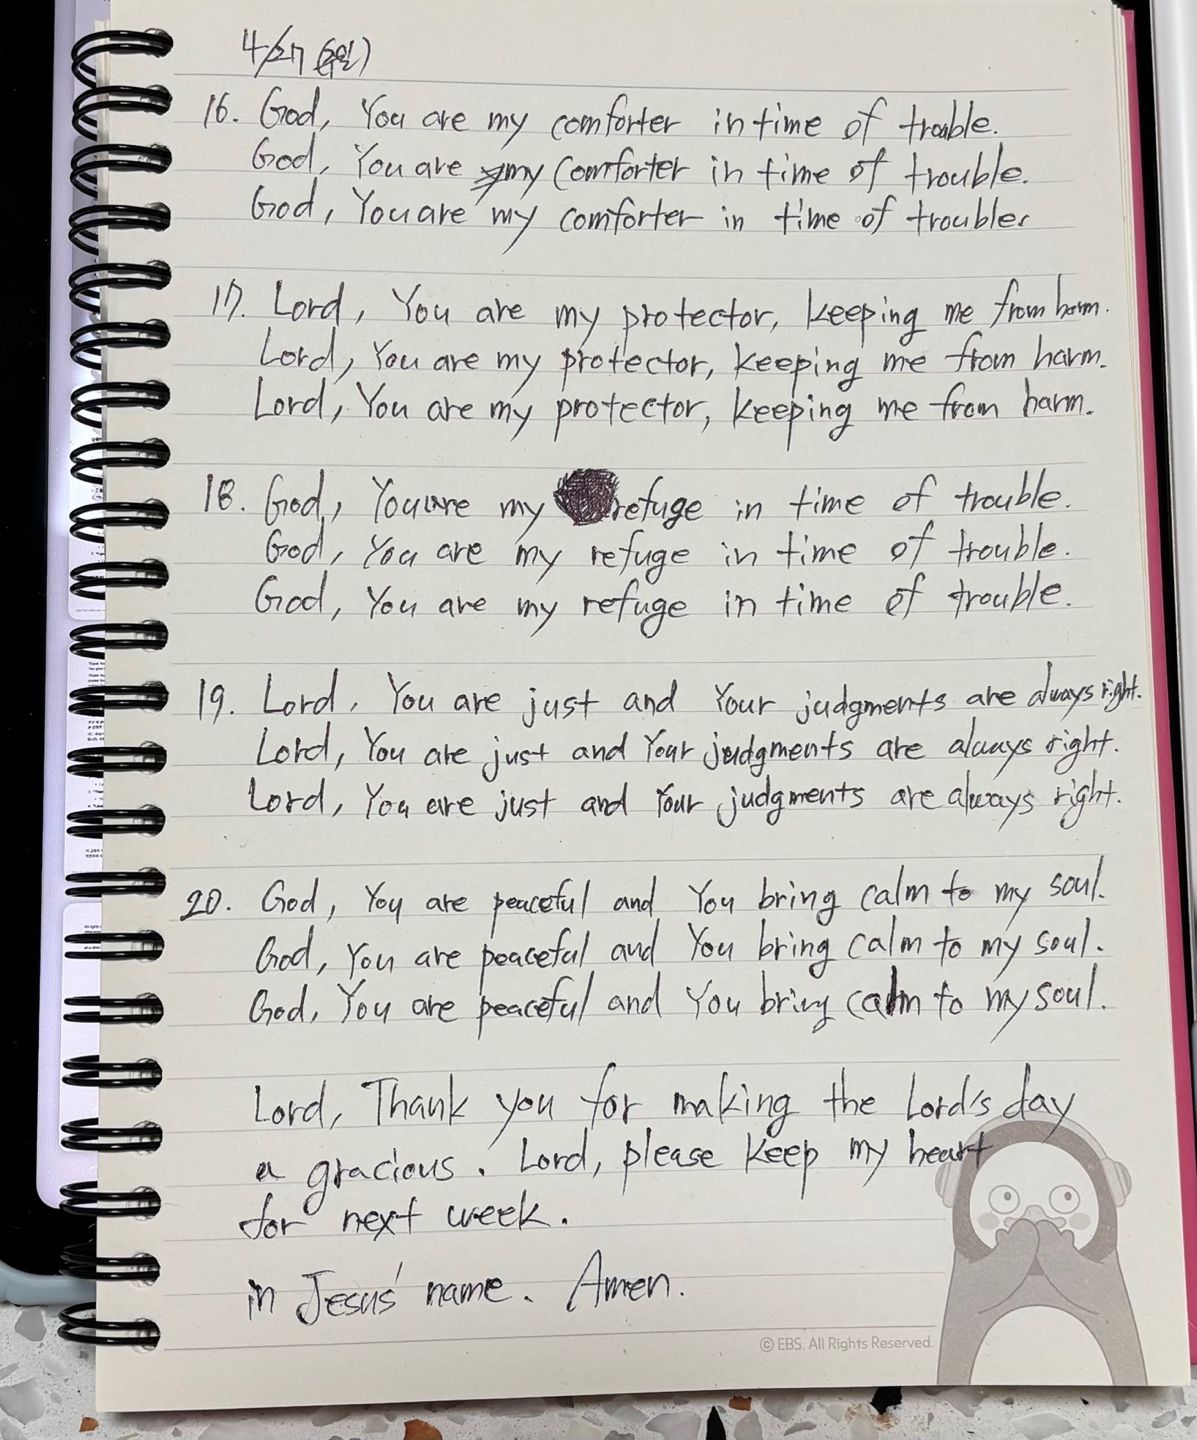 4/27 (주일)
16. God, You are my comforter in time of trouble.
God, You are my comforter in time of trouble.
God, You are my comforter in time of trouble.
17. Lord, You are my protector, keeping me from harm.
Lord, You are my protector, keeping me from harm.
Lord, You are my protector, keeping me from harm.
18. God, You are my refuge in time of trouble.
God, You are my refuge in time of trouble.
God, You are my refuge in time of trouble.
19. Lord, You are just and Your judgments are always right.
Lord, You are just and Your judgments are always right.
Lord, You are just and Your judgments are always right.
20. God, You are peaceful and You bring calm to my soul.
God, You are peaceful and You bring calm to my soul.
God, You are peaceful and You bring calm to my soul.
Lord, Thank you for making the Lord's day
a gracious. Lord, please keep my heart
for next week.
in Jesus' name. Amen.
© EBS. All Rights Reserved.